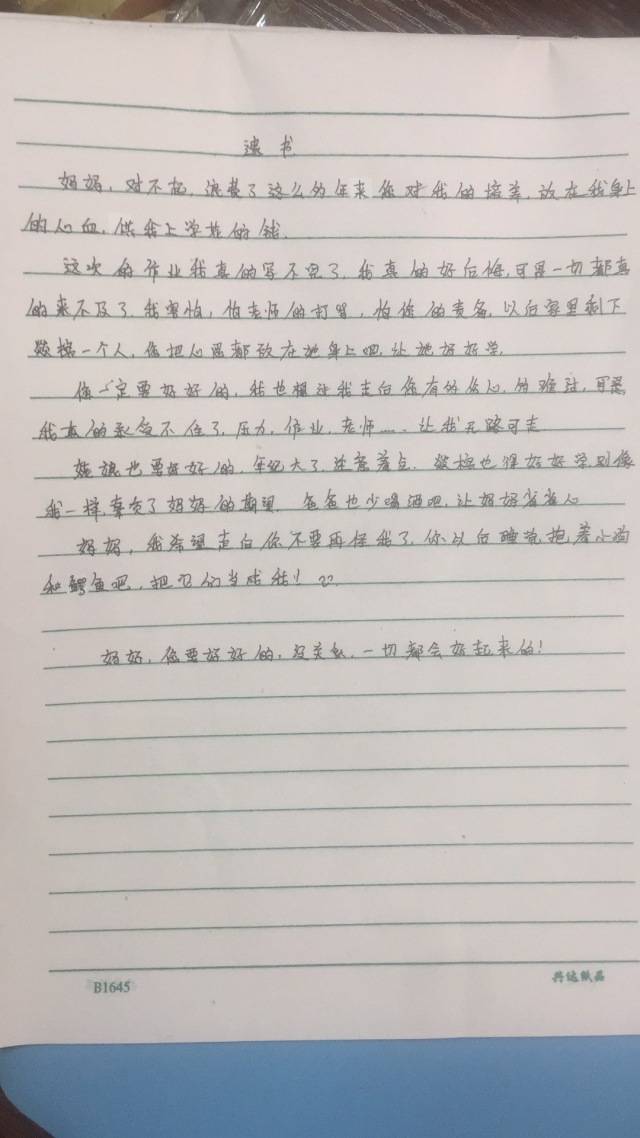 遗书
妈妈，对不起，浪费了这么多年来你对我的培养，放在我身上
的心血，供我上学花的钱。
这次的作业我真的写不完了，我真的好后悔，可是一切都真
的来不及了，我害怕，怕老师的打骂，怕你的责备，以后家里剩下
一个人，你把心思都放在她身上吧，让她好好学。
你一定要好好的，我也想过我走后你有多伤心，多难过，可是
我真的承受不住了，压力，作业，老师……让我无路可走
也要好好的，年纪大了，注意着点，也得好好学别像
我一样，辜负了妈妈的期望，爸爸也少喝酒吧，让妈妈省省心
妈妈，我希望走后你不要再怪我了，你以后睡就抱着小
和鳄鱼吧，把它们当成我！
妈妈，你要好好的，没关系，一切都会好起来的！
B1645
兴达纸品